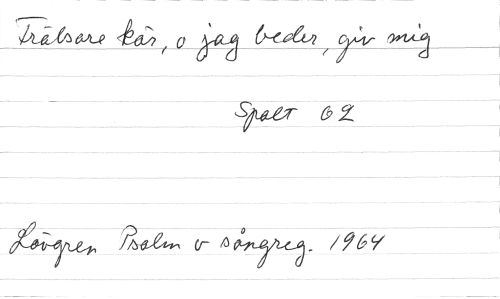 Frälsare kär, o jag beder, giv mig
Spalt 62
Lövgren Psalm o sångreg. 1964